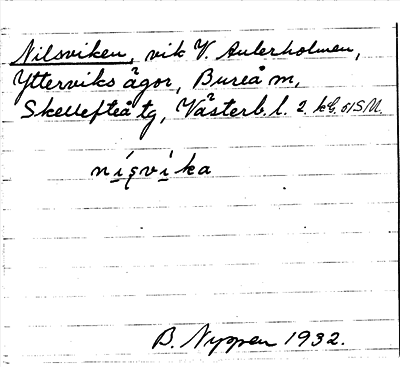 Nilsviken, vik V. Aulerholmen,
Ytterviks ägor, Bureå m,
Skellefteå tg, Västerb. l. 2 kB. 61 S M.
ni̱şvi̱ka
B. Nyppen 1932.